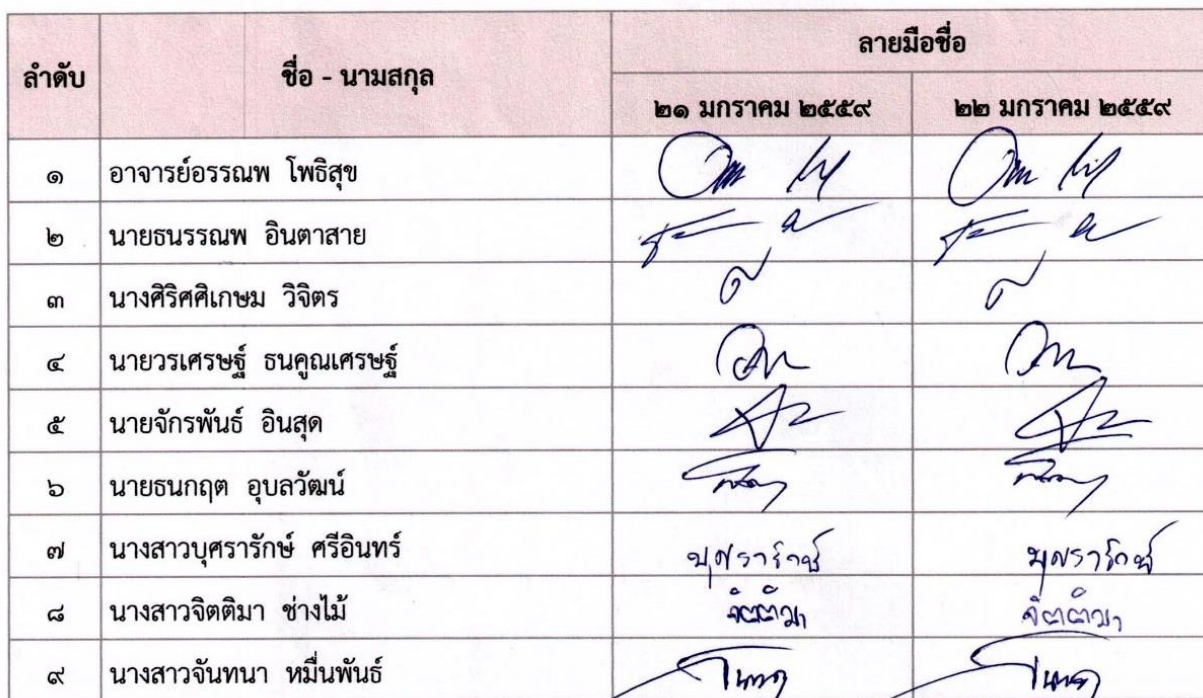 ลำดับ ชื่อ - นามสกุล ลายมือชื่อ
๒๑ มกราคม ๒๕๕๙ ๒๒ มกราคม ๒๕๕๙
๑ อาจารย์อรรณพ โพธิสุข
๒ นายธนรรณพ อินตาสาย
๓ นางศิริศศิเกษม วิจิตร
๔ นายวรเศรษฐ์ ธนคูณเศรษฐ์
๕ นายจักรพันธ์ อินสุด
๖ นายธนกฤต อุบลวัฒน์
๗ นางสาวบุศรารักษ์ ศรีอินทร์ บุศรารักษ์ บุศรารักษ์
๘ นางสาวจิตติมา ช่างไม้ จิตติมา จิตติมา
๙ นางสาวจันทนา หมื่นพันธ์